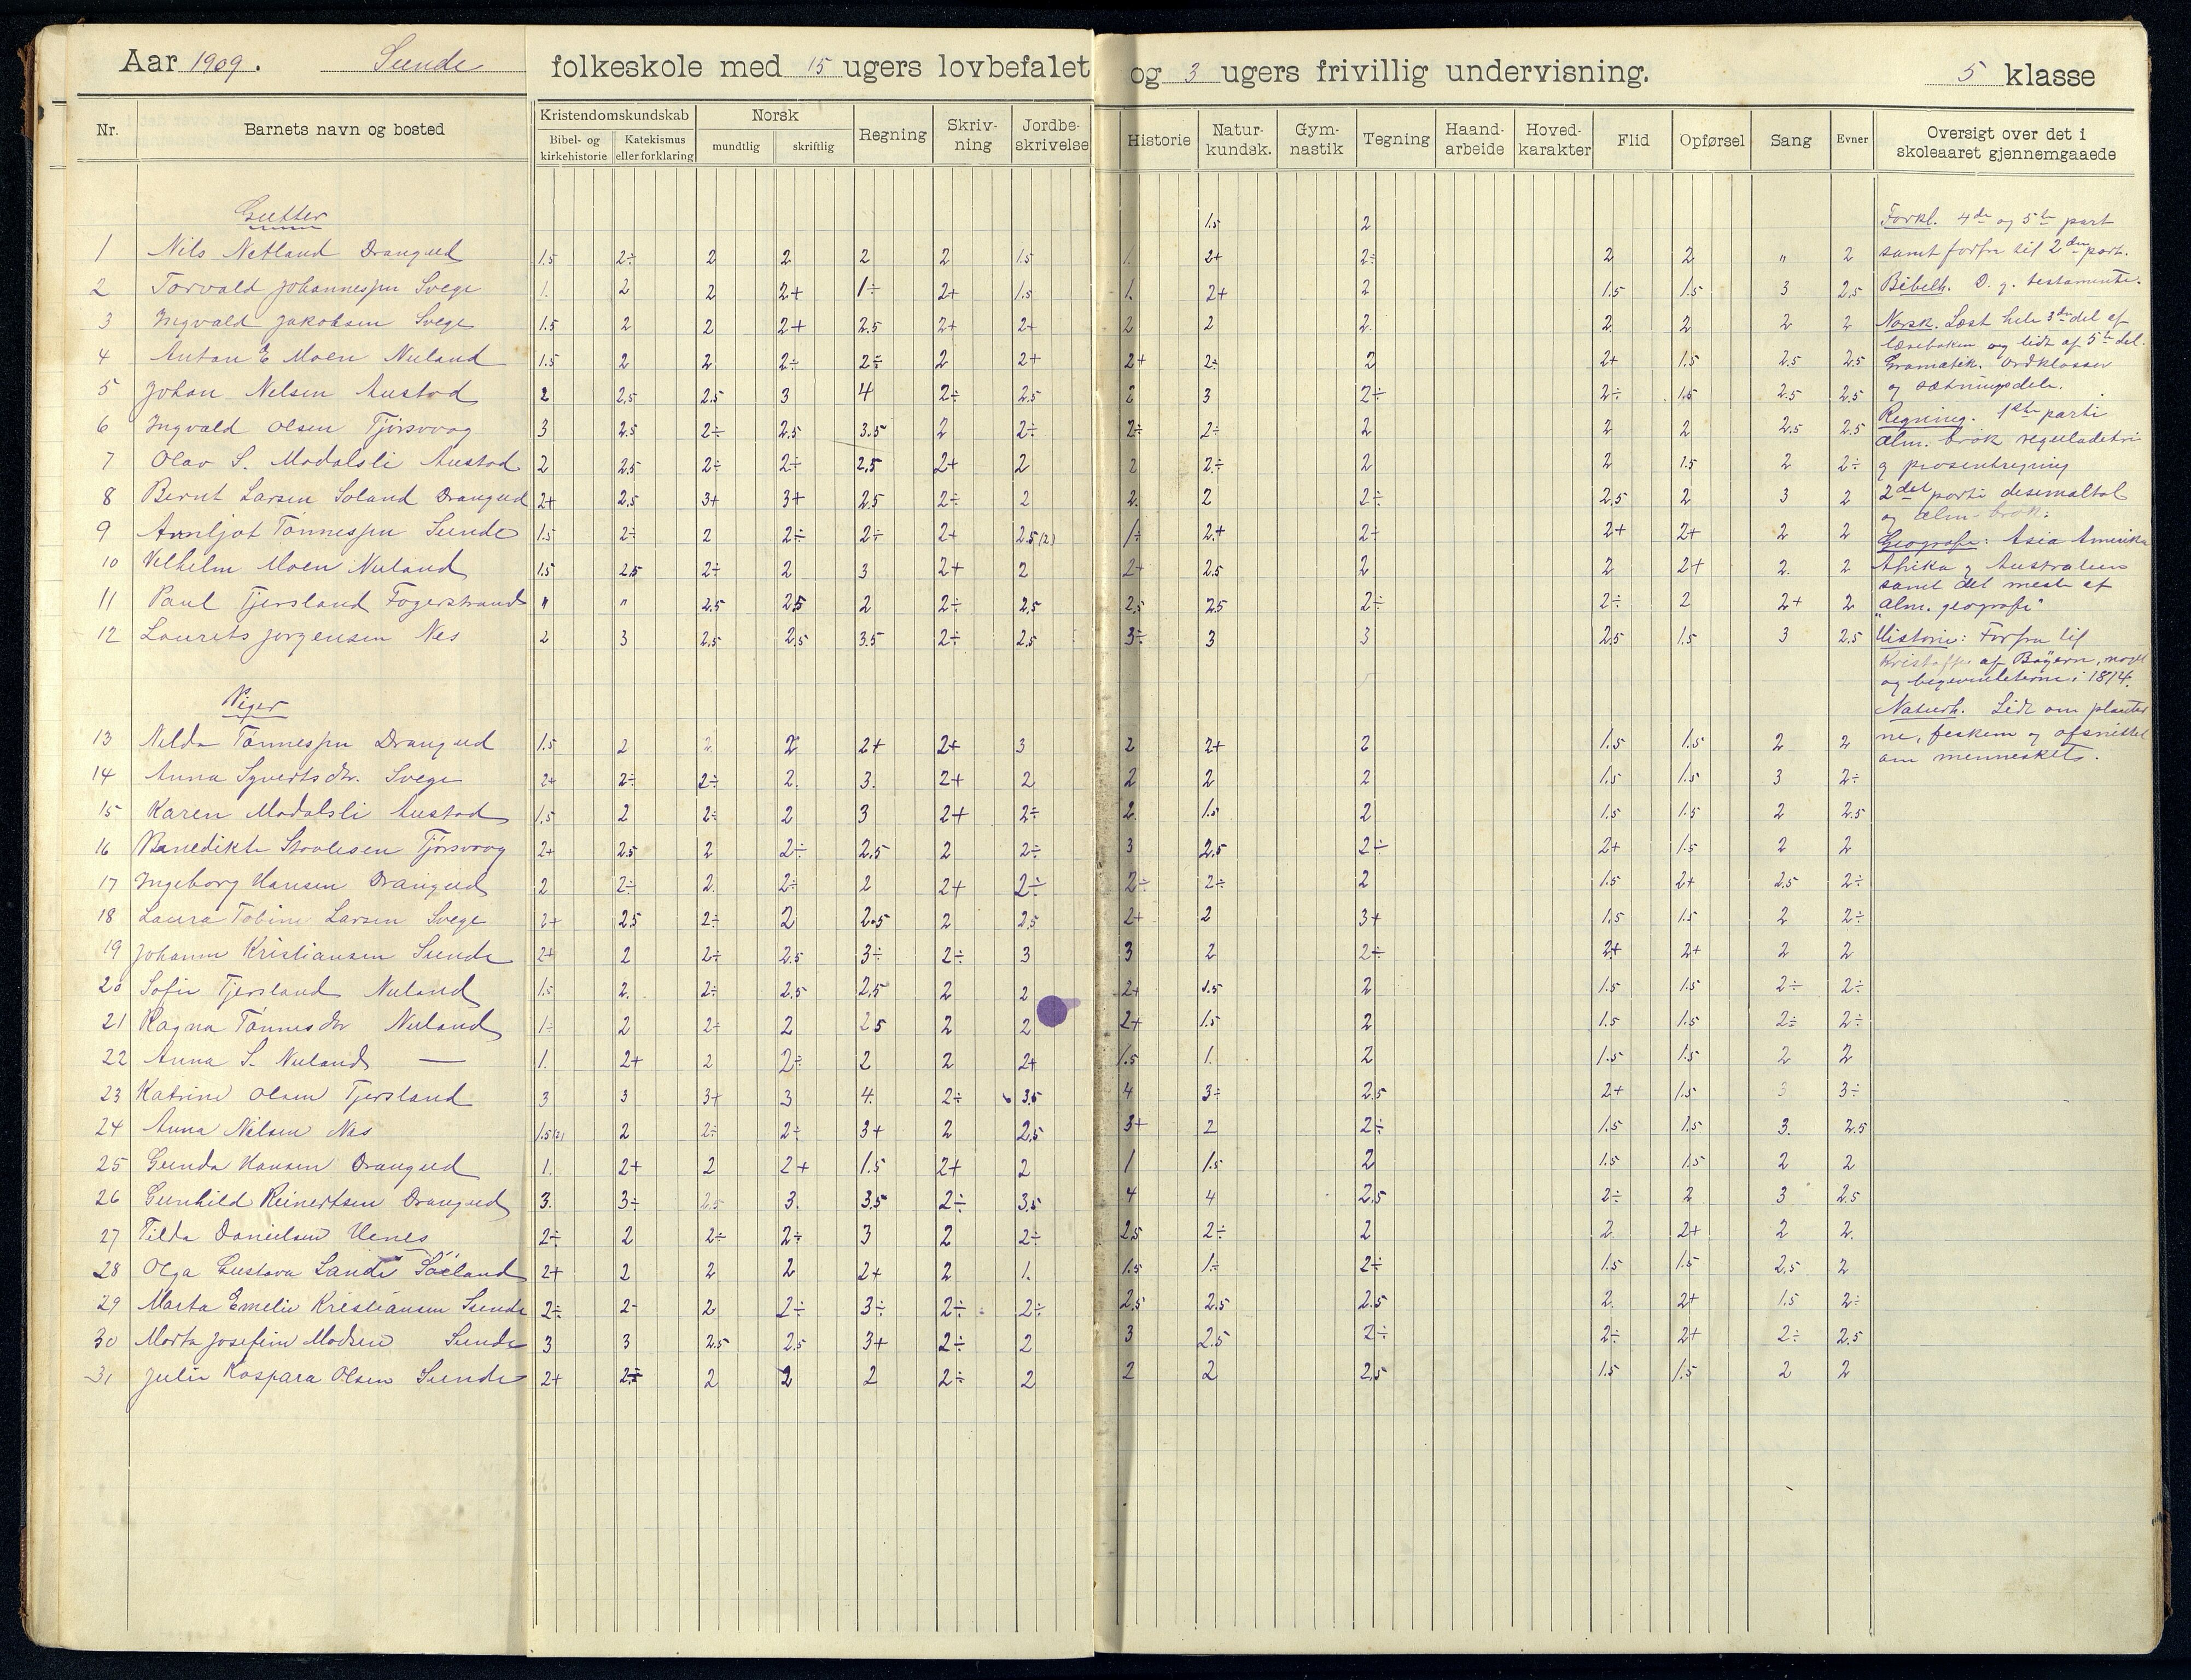 Aar 1909. Sunde folkeskole med 15 ugers lovbefalet og 3 ugers frivillig undervisning. 5 klasse
Nr. Barnets navn og bosted Kristendomskundskab Norsk Regning Skriv-ning Jordbe-skrivelse Historie Natur-kundsk. Gym-nastik Tegning Haand-arbeide Hoved-karakter Flid Opførsel Sang Evner Oversigt over det i skoleaaret gjennemgaaede
Bibel- og kirkehistorie Katekismus eller forklaring mundtlig skriftlig
Gutter 1.5 2
1 Nils Netland Drangeid 1.5 2÷ 2 2 2 2 1.5 1. 2+ 2÷ 2 2 " 2
2 Torvald Johannessen Svege 1. 2 2 2+ 1÷ 2+ 1.5 1. 2+ 2 1.5 1.5 3 2.5
3 Ingvald Jakobsen Svege 1.5 2 2 2+ 2.5 2+ 2+ 2 2 2 2 2 2 2
4 Anton E Moen Nuland 1.5 2 2 2÷ 2÷ 2 2+ 2+ 2÷ 2 2+ 1.5 2.5 2.5
5 Johan Nelsen Austad 2 2.5 2.5 3 4 2÷ 2.5 2 3 2÷ 2÷ 1.5 2.5 2.5
6 Ingvald Olsen Tjørsvaag 3 2.5 2÷ 2.5 3.5 2 2÷ 2÷ 2÷ 2 2 2 2.5 2.5
7 Olav S. Modalsli Austad 2 2.5 2÷ 2÷ 2.5 2+ 2 2 2÷ 2 2 1.5 2 2÷
8 Bernt Larsen Soland Drangeid 2+ 2.5 3+ 3+ 2.5 2÷ 2 2. 2 2÷ 2.5 2 3 2
9 Arnljot Tønnessen Sunde 1.5 2÷ 2 2÷ 2÷ 2+ 2.5(2) 1÷ 2+ 2÷ 2+ 2+ 2 2
10 Vilhelm Moen Nuland 1.5 2.5 2÷ 2 3 2+ 2 2+ 2.5 2 2 2+ 2. 2
11 Paul Tjersland Fogerstrand " " 2.5 2.5 2 2÷ 2.5 2.5 2.5 2÷ 2÷ 2 2+ 2
12 Laurets Jørgensen Nes 2 3 2.5 2.5 3.5 2÷ 2.5 3÷ 3 3 2.5 1.5 3 2.5
Piger
13 Nelda Tønnessen Drangeid 1.5 2 2. 2 2+ 2+ 3 2 2+ 2 1.5 1.5 2 2
14 Anna Syvertsdtr. Svege 2+ 2÷ 2÷ 2. 3. 2+ 2 2 2 2 1.5 1.5 3 2÷
15 Karen Modalsli Austad 1.5 2 2÷ 2 3 2+ 2÷ 2. 1.5 2 1.5 1.5 2 2.5
16 Benedikte Stolesen Tjørsvaag 2+ 2.5 2 2÷ 2.5 2 2÷ 3 2.5 2÷ 2+ 1.5 2 2
17 Ingeborg Hansen Drangeid 2 2÷ 2. 2÷ 2 2+ 2÷ 2÷ 2÷ 2 1.5 2+ 2.5 2÷
18 Laura Tobine Larsen Svege 2+ 2.5 2÷ 2 2.5 2 2.5 2+ 2 3+ 1.5 1.5 2 2÷
19 Johanne Kristiansen Sunde 2+ 2 2÷ 2.5 3÷ 2÷ 3 3 2 2÷ 2+ 2+ 2 2
20 Sofie Tjersland Nuland 1.5 2. 2÷ 2.5 2.5 2 2 2+ 1.5 2 1.5 1.5 2÷ 2÷
21 Ragna Tønnesdtr Nuland 1÷ 2 2÷ 2 2.5 2 2 2+ 1.5 2 1.5 1.5 2÷ 2÷
22 Anna S. Nuland — 1. 2+ 2 2÷ 2 2 2+ 1.5 1. 2 1.5 1.5 2 2
23 Katrine Olsen Tjersland 3 3 3+ 3 4. 2÷ 3.5 4 3÷ 2.5 2+ 1.5 3 3÷
24 Anna Nilsen Nes 1.5(2) 2 2÷ 2÷ 3+ 2 2.5 3+ 2 2÷ 1.5 1.5 3. 2.5
25 Gunda Hansen Drangeid 1. 2+ 2 2+ 1.5 2+ 2 1 1.5 2 1.5 1.5 2 2
26 Gunhild Reinertsen Drangeid 3. 3÷ 2.5 3. 3.5 2÷ 3.5 4 4 2.5 2÷ 2 3 2.5
27 Tilda Danielsen Henes 2÷ 2 2÷ 2÷ 3 2 2÷ 2.5 2÷ 2 2 2+ 2 2.
28 Olga Gustava Lande Søeland 2+ 2 2 2 2+ 2 1. 1.5 1÷ 2÷ 1.5 1.5 2.5 2
29 Marta Emelie Kristiansen Sunde 2÷ 2- 2 2÷ 3÷ 2÷ 2÷ 2.5 2.5 2.5 2. 2+ 1.5 2÷
30 Marta Josefine Madsen Sunde 3 3 2.5 2.5 3+ 2÷ 2 3 2.5 2÷ 2÷ 2+ 2÷ 2.5
31 Julie Kaspara Olsen Sunde 2+ 2÷ 2 2 2 2÷ 2 2 2 2.5 1.5 1.5 2 2
Forkl. 4de og 5te part
samt forfra til 2den part.
Bibelh. D. g. testamente.
Norsk. Læst hele 3die del af
læseboken og lidt af 5te del.
Gramatik. Ordklasser
og sætningsdele.
Regning. 1ste parti
alm. brøk reguladetri
og prosentregning
2det parti desemaltal
og alm. brøk.
Geografi: Asia Amerika
Afrika og Australien
samt det meste af
"alm. geografi"
Historie: Forfra til
Kristoffer af Bayern, noget
og begivenheterne i 1814.
Naturh. Lidt om planter
ne, feskem og afsnittet
om mennesket.